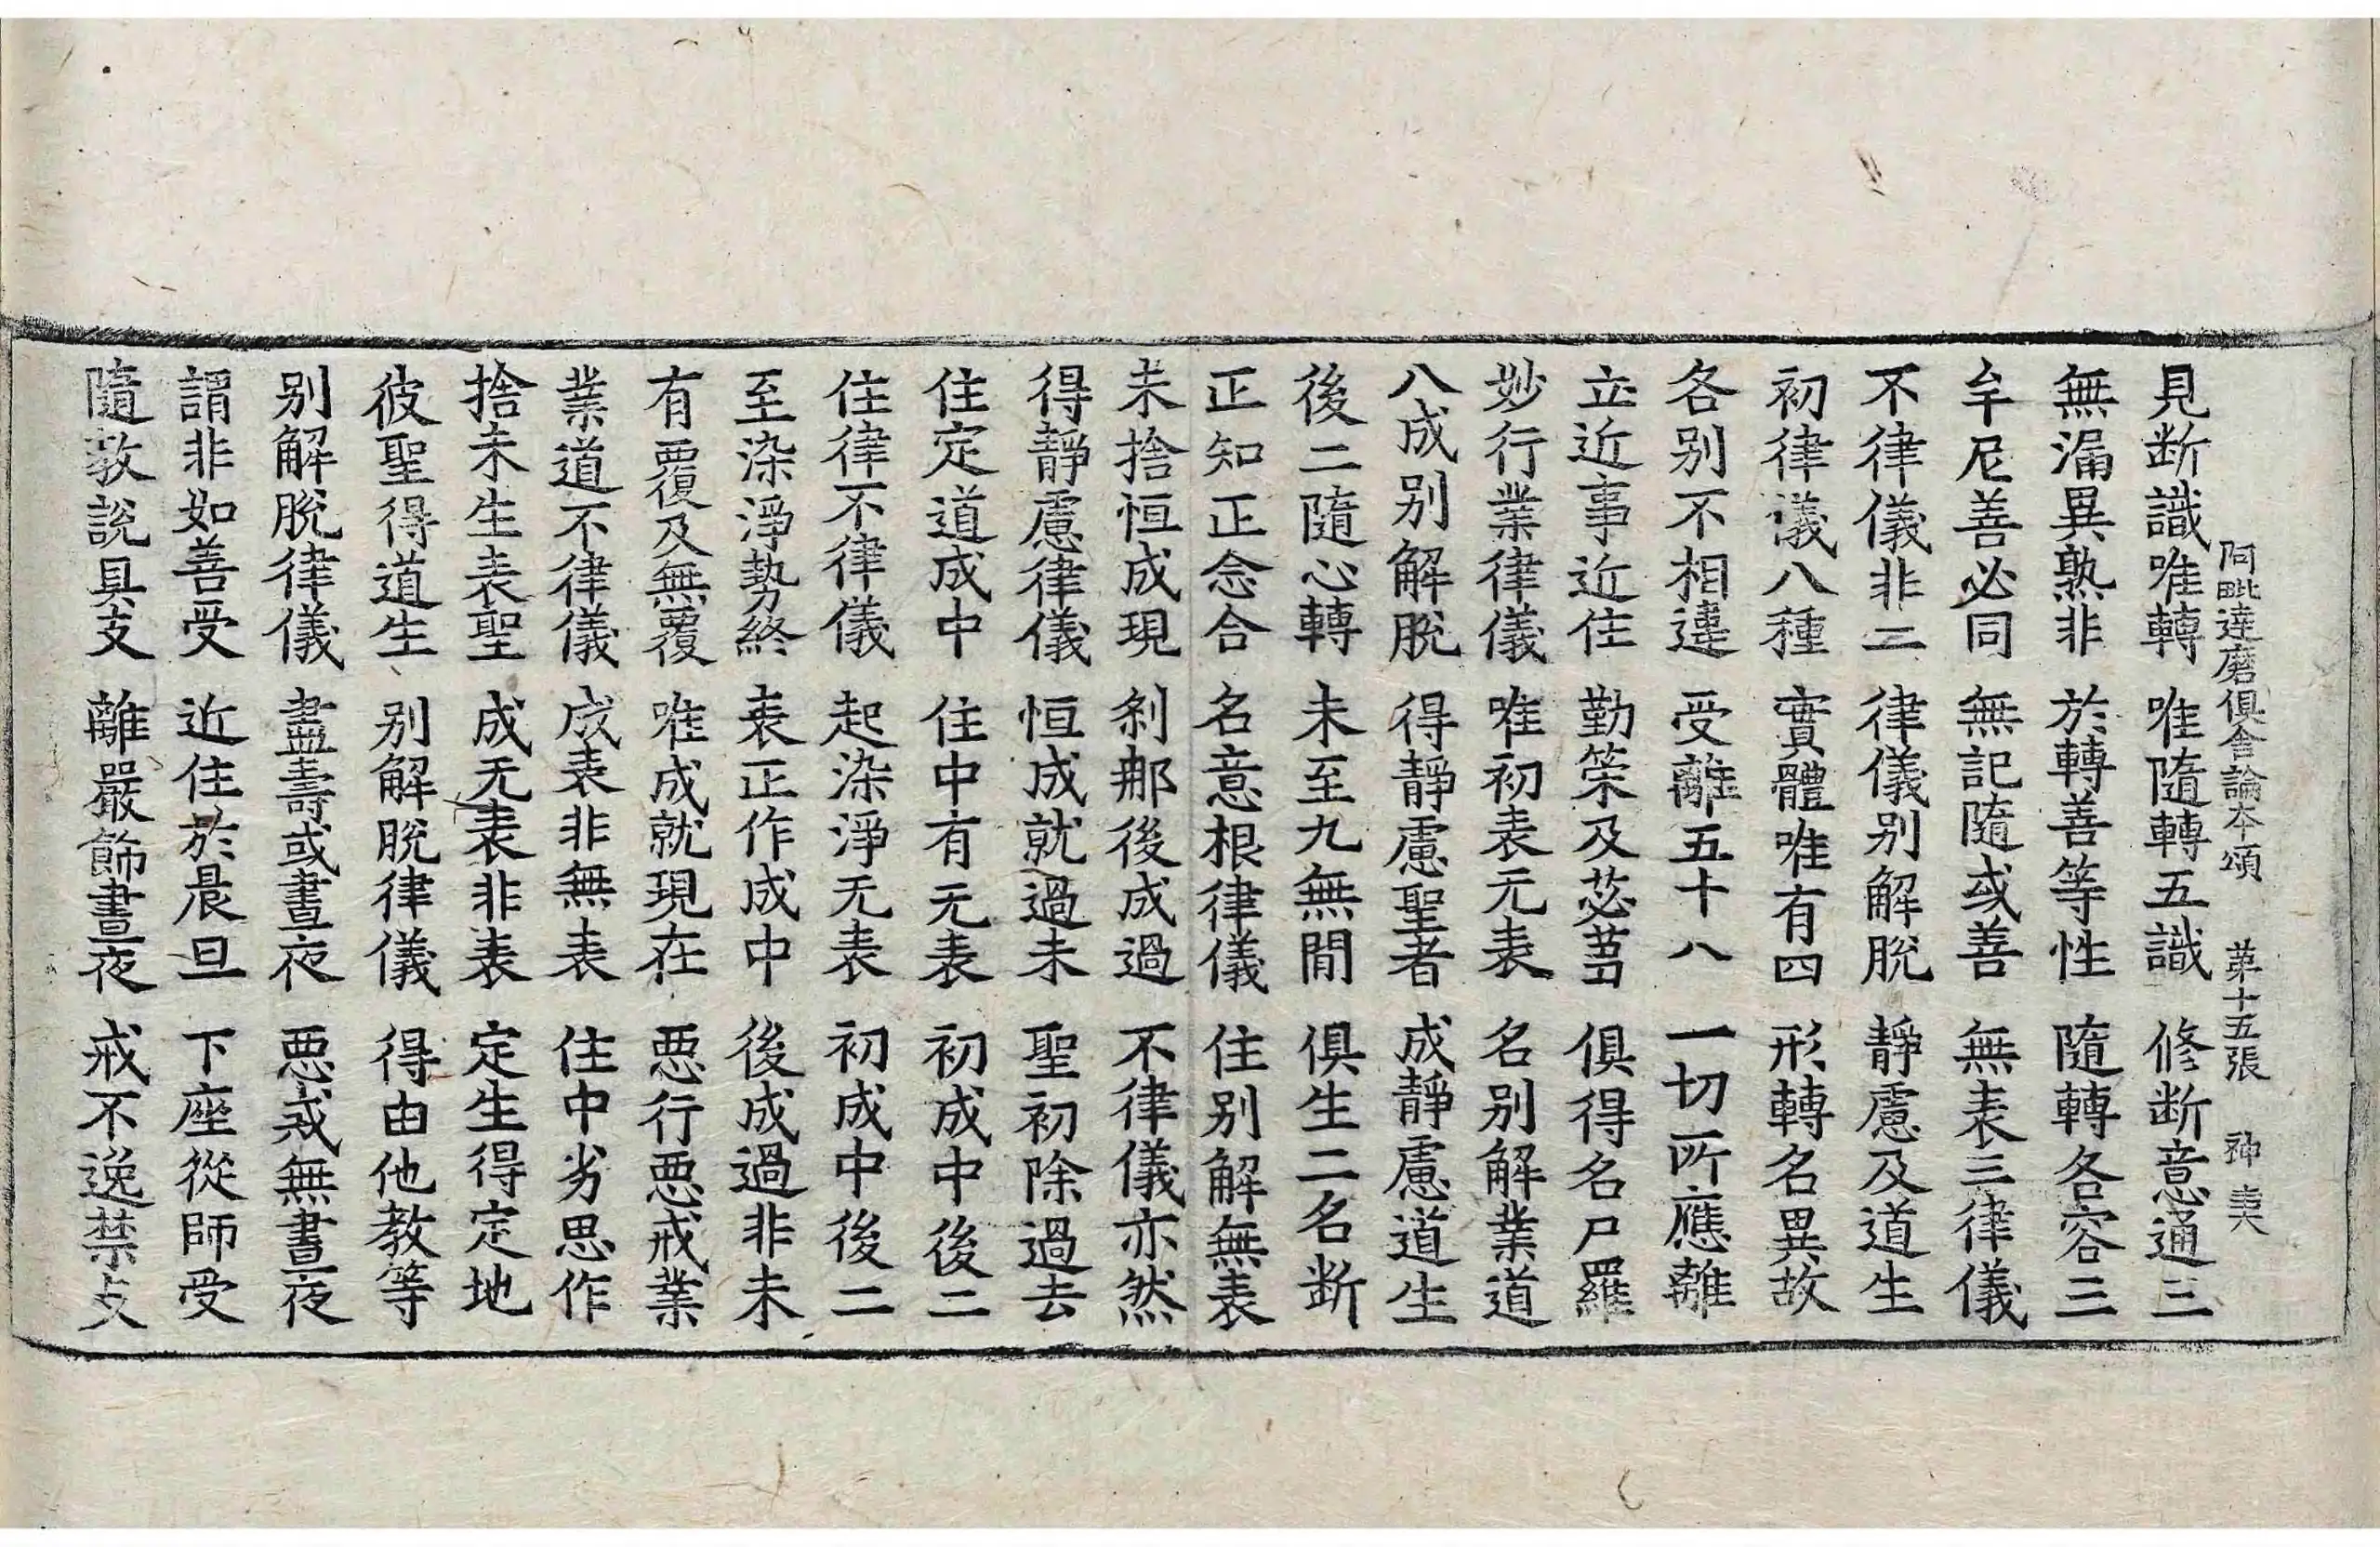 阿毗達磨俱舍論本頌 第十五張 神
見断識唯轉 唯隨轉五識 修断意通三
無漏異熟非 於轉善等性 隨轉各容三
牟尼善必同 無記隨或善 無表三律儀
不律儀非二 律儀别解脫 靜慮及道生
初律儀八種 實體唯有四 形轉名異故
各别不相違 受離五十八 一切所應離
立近事近住 勤策及苾蒭 俱得名尸羅
妙行業律儀 唯初表无表 名别解業道
八成别解脫 得靜慮聖者 成靜慮道生
後二隨心轉 未至九無間 俱生二名断
正知正念合 名意根律儀 住别解無表
未捨恒成現 刹那後成過 不律儀亦然
得靜慮律儀 恒成就過未 聖初除過去
住定道成中 住中有无表 初成中後二
住律不律儀 起染淨无表 初成中後二
至染淨勢終 表正作成中 後成過非未
有覆及無覆 唯成就現在 惡行惡戒業
業道不律儀 成表非無表 住中劣思作
捨未生表聖 成无表非表 定生得定地
彼聖得道生 别解脫律儀 得由他教等
别解脫律儀 盡壽或晝夜 惡戒無晝夜
謂非如善受 近住於晨旦 下座從師受
隨教說具支 離嚴飾晝夜 戒不逸禁支